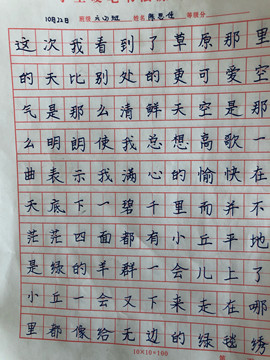 10月22日 班级 六(4)班 姓名 陈思佳 等级分
这次我看到了草原那里
的天比别处的更可爱空
气是那么清鲜天空是那
么明朗使我总想高歌一
曲表示我满心的愉快在
天底下一碧千里而并不
茫茫四面都有小丘平地
是绿的羊群一会儿上了
小丘一会又下来走在哪
里都像给无边的绿毯绣
10×10=100